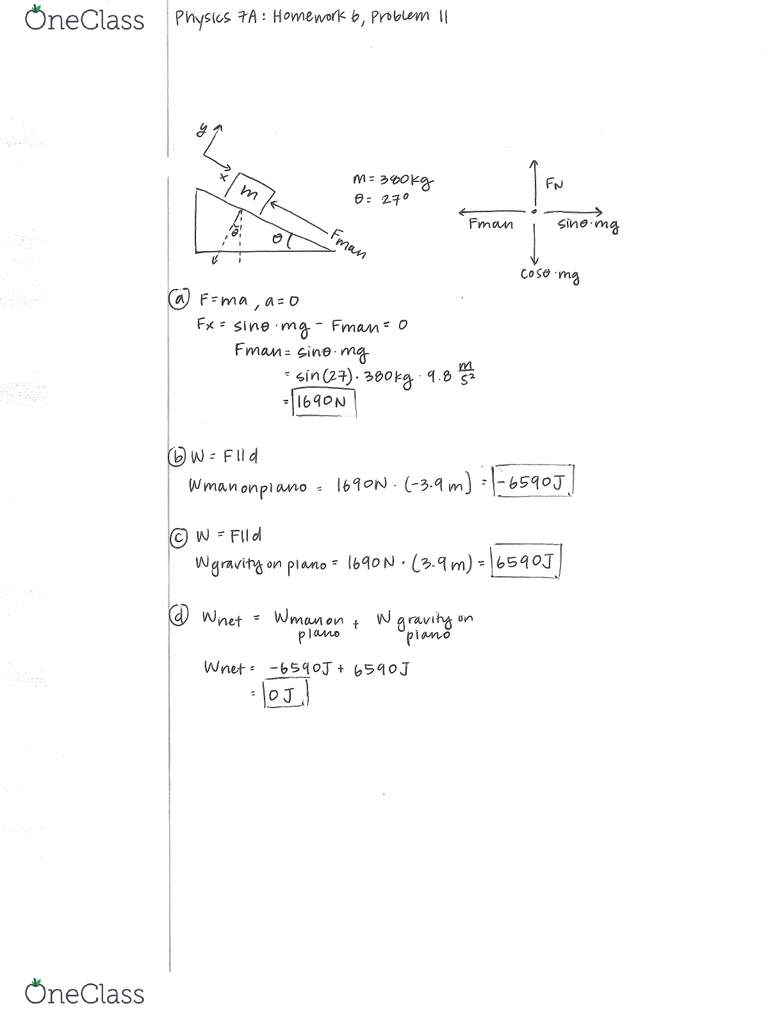 OneClass
Physics 7A: Homework 6, Problem 11
y
x
m
θ
θ
Fman
m = 380kg
θ = 27°
FN
Fman
sinθ·mg
cosθ·mg
ⓐ F=ma, a=0
Fx = sinθ·mg - Fman = 0
Fman = sinθ·mg
= sin(27)·380kg·9.8 m/s²
= 1690N
ⓑ W = F||d
Wman on piano = 1690N·(-3.9m) = -6590J
ⓒ W = F||d
Wgravity on piano = 1690N·(3.9m) = 6590J
ⓓ Wnet = Wman on piano + Wgravity on piano
Wnet = -6590J + 6590J
= 0J
OneClass